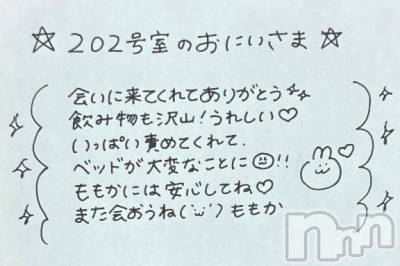 ☆202号室のおにいさま☆
会いに来てくれてありがとう
飲み物も沢山!うれしい♡
いっぱい責めてくれて、
ベッドが大変なことに!!
ももかには安心してね♡
また会おうね(˙ᵕ˙)ももか